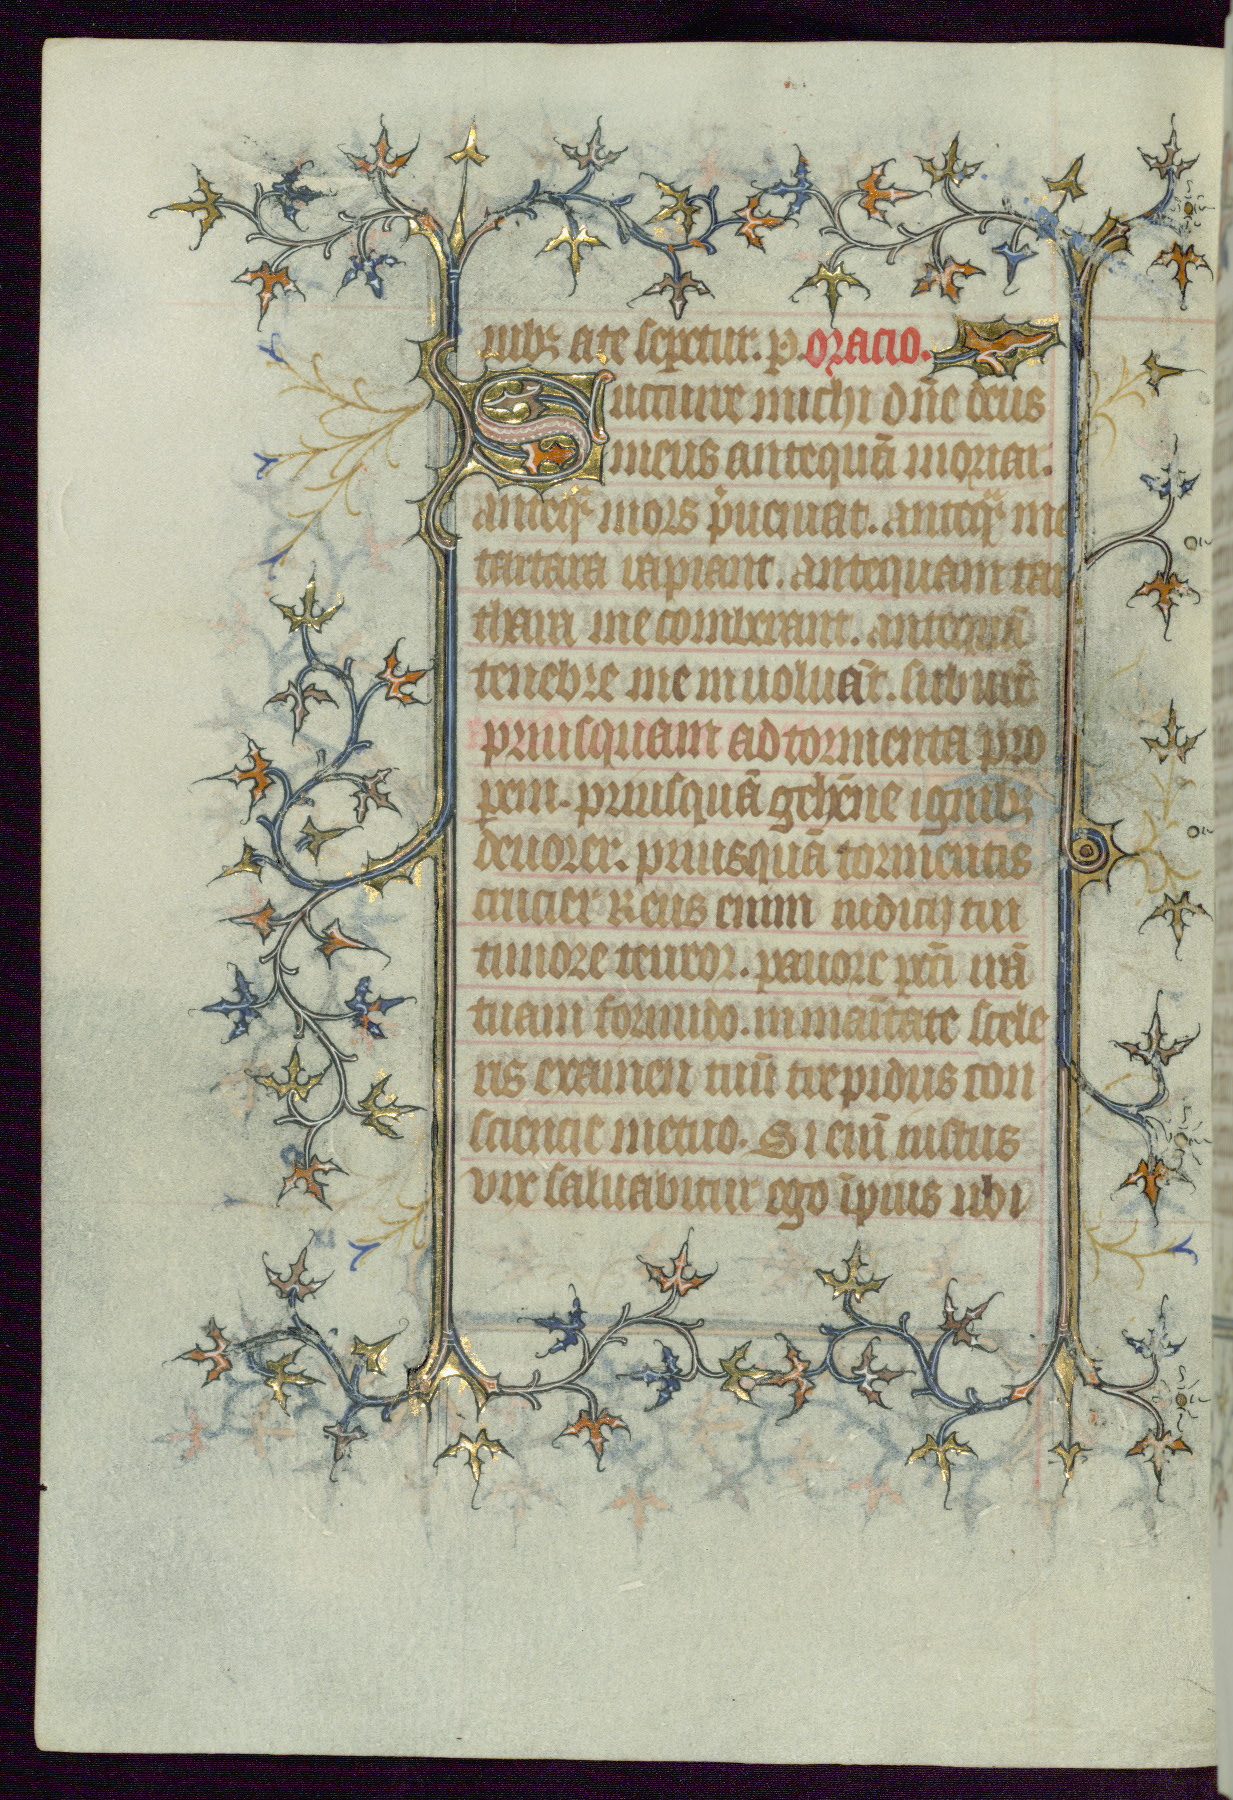 nibꝫ a te sepetur. p. oracio.
Succurre michi dn̄e deus
meus antequā moriar.
anteqͣ mors p̄ueniat. anteqͣ me
tartara rapiant. antequam tar
thara me comburant. antequā
tenebre me inuoluāt. subueni
priusquam ad tormenta pro
perem. priusquā gehēne ignibꝫ
deuorer. priusquā tormentis
crucier Reus enim iudicij tui
timore teneor. pauore pcti irā
tuam formido. in man̄tate scele
ris examen tuū trepidus con
sciencie metuo. Si enī iustus
vix saluabitur ego īpius ubi